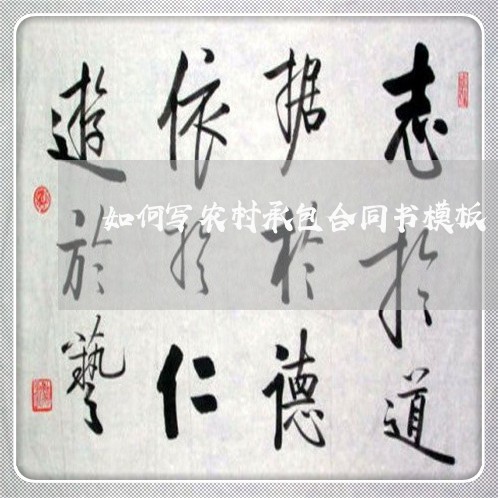 志於道
据於德
依於仁
遊於藝
如何写农村承包合同书模板